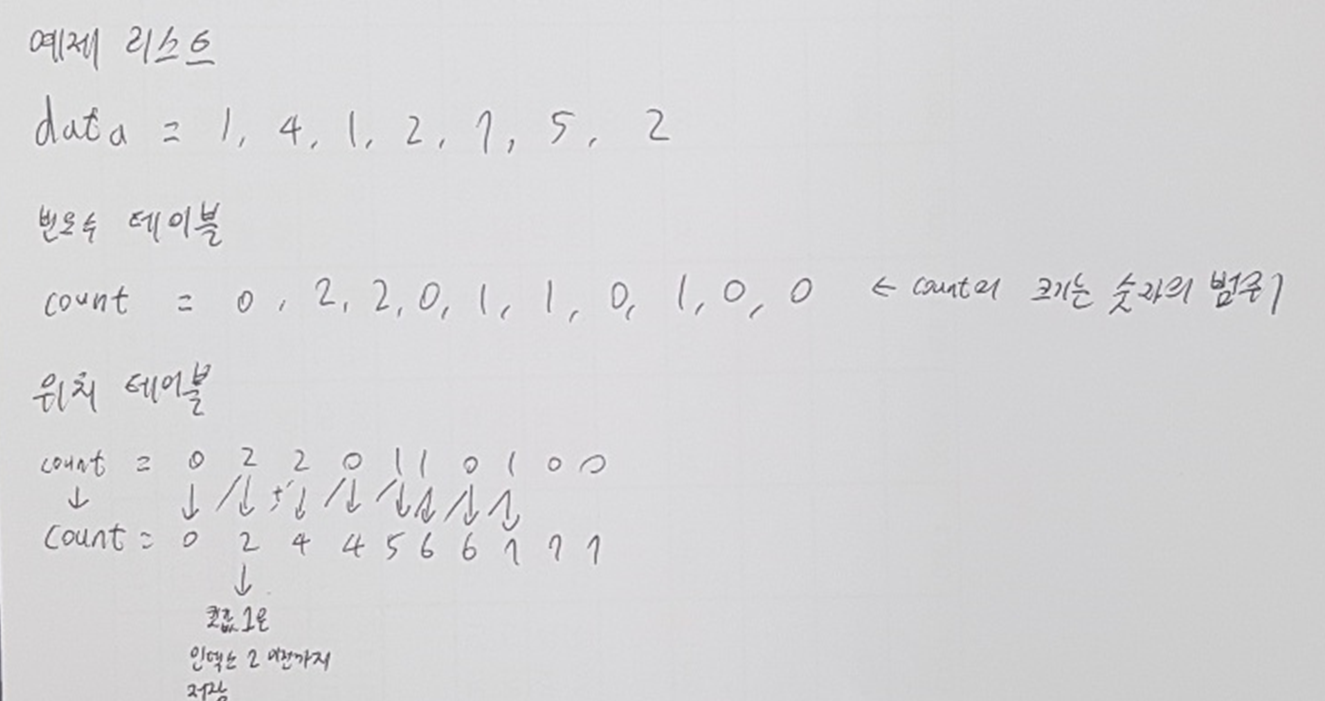 예제 리스트
data = 1, 4, 1, 2, 7, 5, 2
빈도수 테이블
count = 0, 2, 2, 0, 1, 1, 0, 1, 0, 0 ← count의 크기는 숫자의 범위
위치 테이블
count = 0 2 2 0 1 1 0 1 0 0
↓ ↓ ↓ + ↓ ↓ ↓ ↓ ↓ ↓
count = 0 2 4 4 5 6 6 7 7 7
↓
킷값 1은
인덱스 2 이전까지
저장